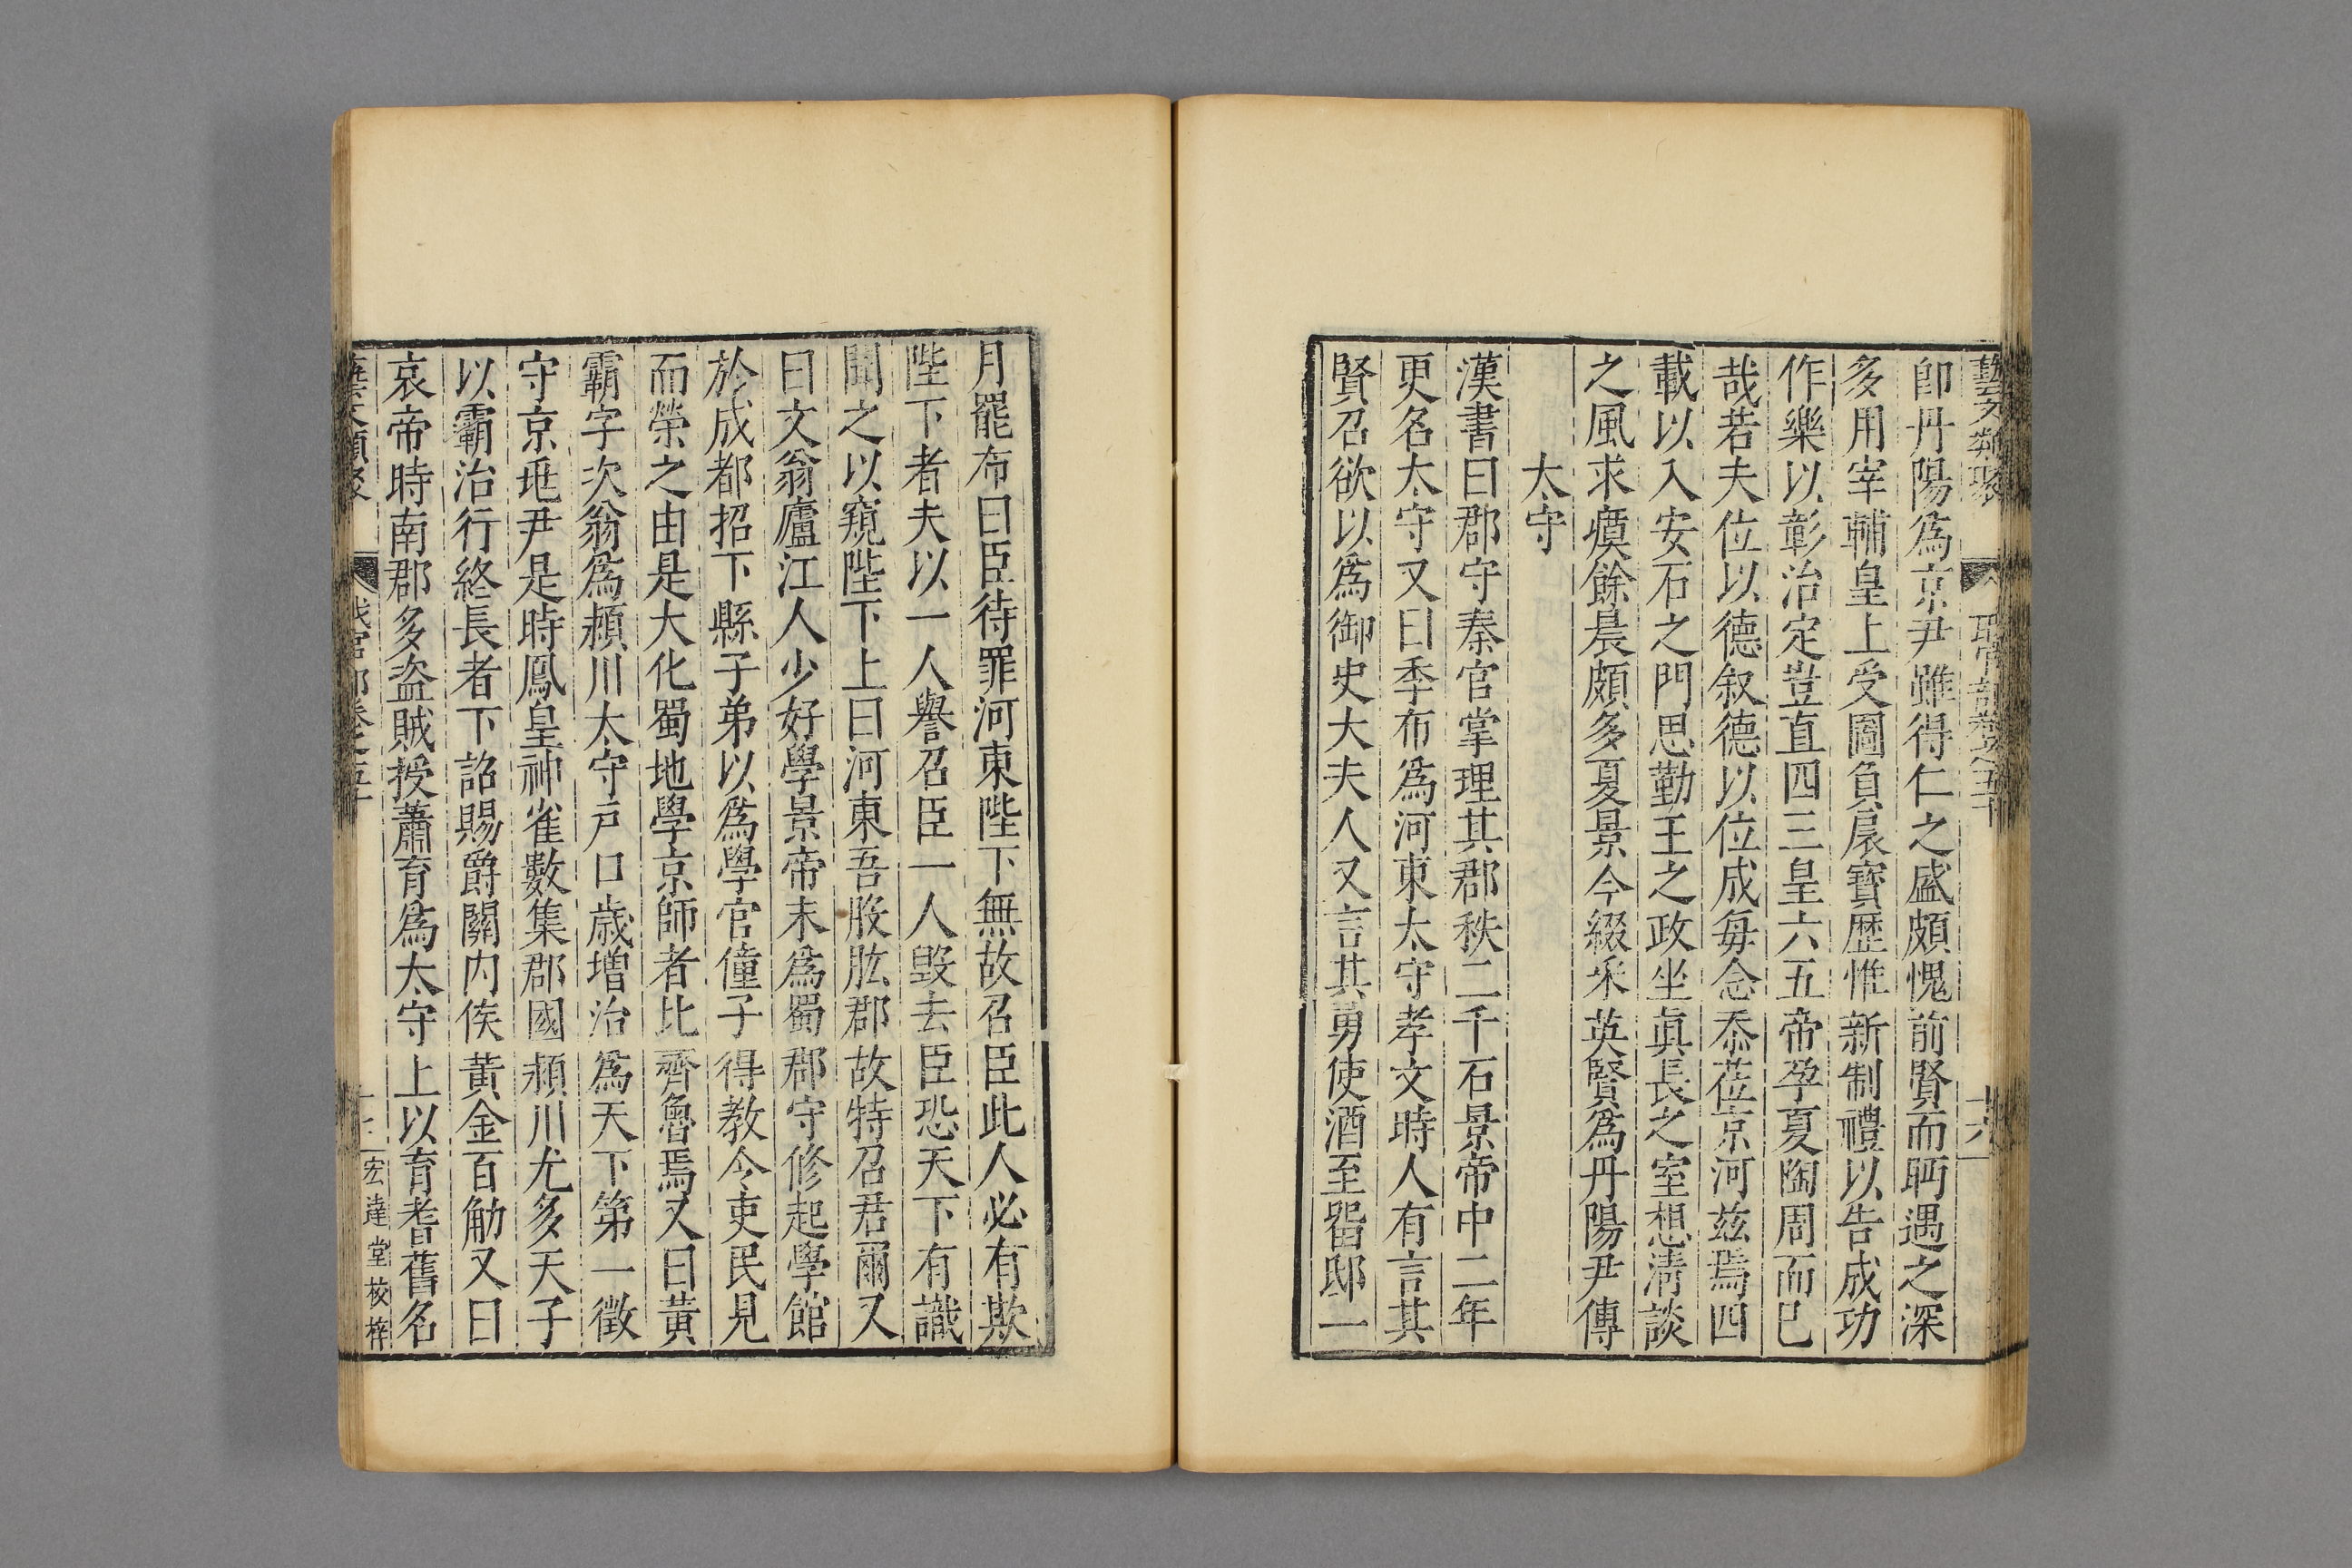 藝文類聚 職官部卷之五十 十六
即丹陽爲京尹雖得仁之盛頗愧前賢而眄遇之深
多用宰輔皇上受圖負扆寶歷惟新制禮以告成功
作樂以彰治定豈直四三皇六五帝孕夏陶周而已
哉若夫位以德叙德以位成每念忝莅京河兹焉四
載以入安石之門思勤王之政坐眞長之室想清談
之風求瘼餘晨頗多夏景今綴采英賢爲丹陽尹傳
太守
漢書曰郡守秦官掌理其郡秩二千石景帝中二年
更名太守又曰季布爲河東太守孝文時人有言其
賢召欲以爲御史大夫人又言其勇使酒至留邸一
月罷布曰臣待罪河東陛下無故召臣此人必有欺
陛下者夫以一人譽召臣一人毀去臣恐天下有識
聞之以窺陛下上曰河東吾股肱郡故特召君爾又
曰文翁廬江人少好學景帝末爲蜀郡守修起學館
於成都招下縣子弟以爲學官僮子得教令吏民見
而榮之由是大化蜀地學京師者比齊魯焉又曰黃
霸字次翁爲潁川太守戸口歲增治爲天下第一徵
守京兆尹是時鳳皇神雀數集郡國潁川尤多天子
以霸治行終長者下詔賜爵關内侯黃金百觔又曰
哀帝時南郡多盜賊授蕭育爲太守上以育耆舊名
藝文類聚 職官部卷之五十 宏達堂校梓